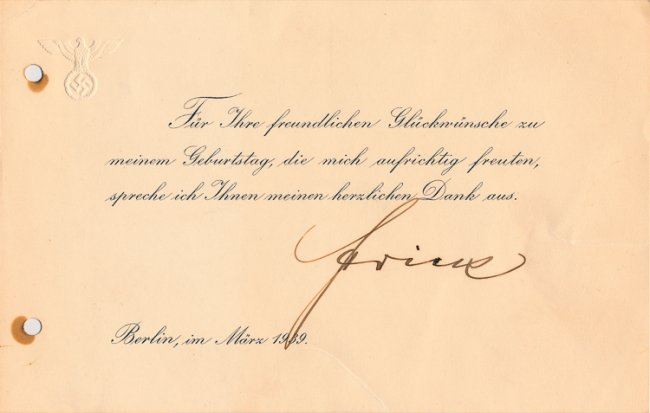 Für Ihre freundlichen Glückwünsche zu
meinem Geburtstag, die mich aufrichtig freuten,
spreche ich Ihnen meinen herzlichen Dank aus.
Frick
Berlin, im März 1939.